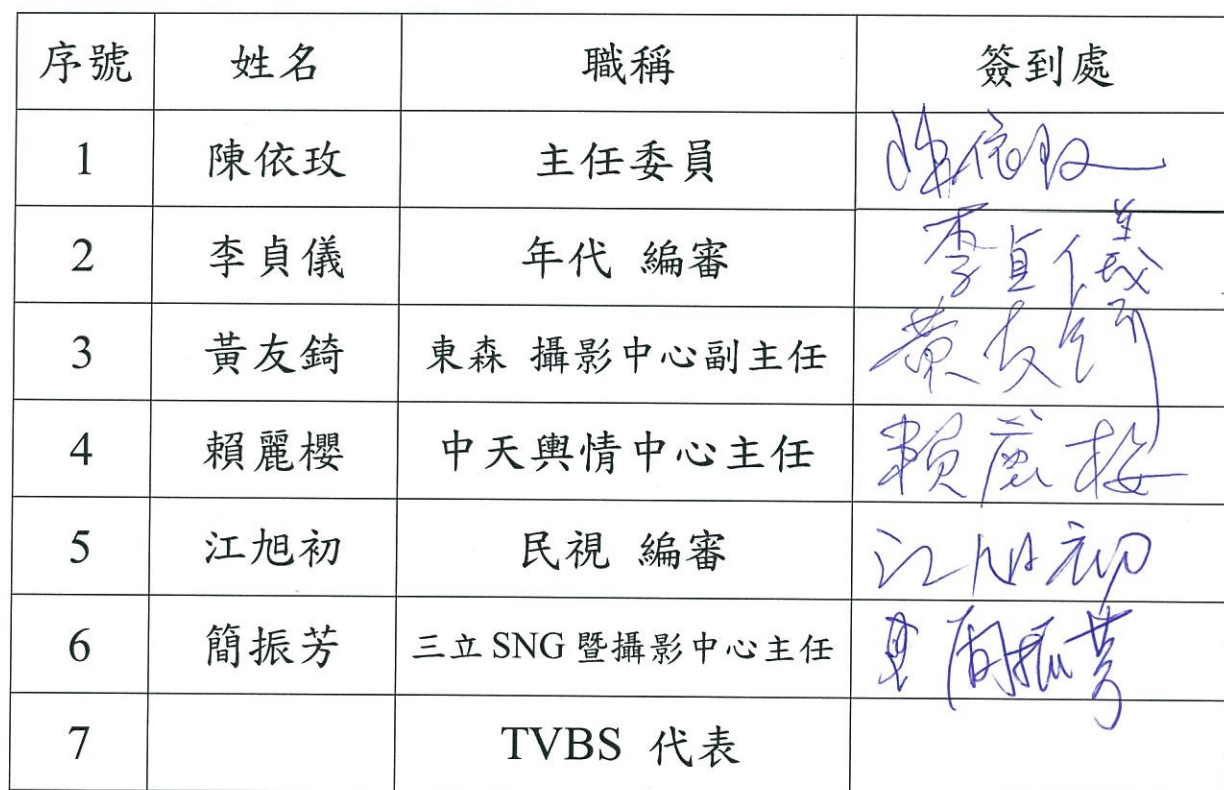 序號 姓名 職稱 簽到處
1 陳依玫 主任委員 陳依玫
2 李貞儀 年代 編審 李貞儀
3 黃友錡 東森 攝影中心副主任 黃友錡
4 賴麗櫻 中天輿情中心主任 賴麗櫻
5 江旭初 民視 編審 江旭初
6 簡振芳 三立 SNG 暨攝影中心主任 簡振芳
7 TVBS 代表